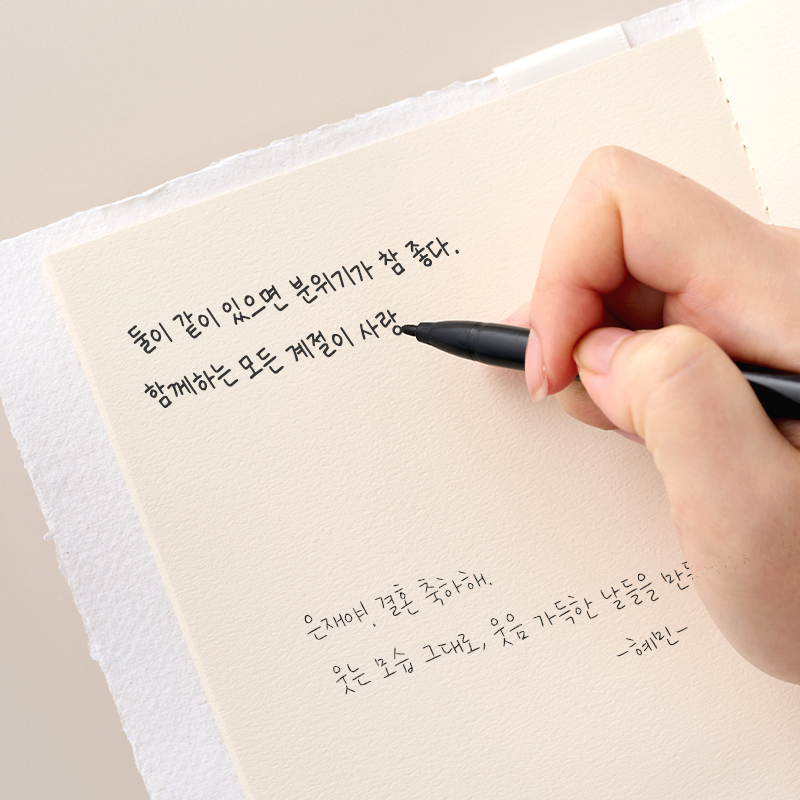 둘이 같이 있으면 분위기가 참 좋다.
함께하는 모든 계절이 사랑
은재야, 결혼 축하해.
웃는 모습 그대로, 웃음 가득한 날들을
-혜민-